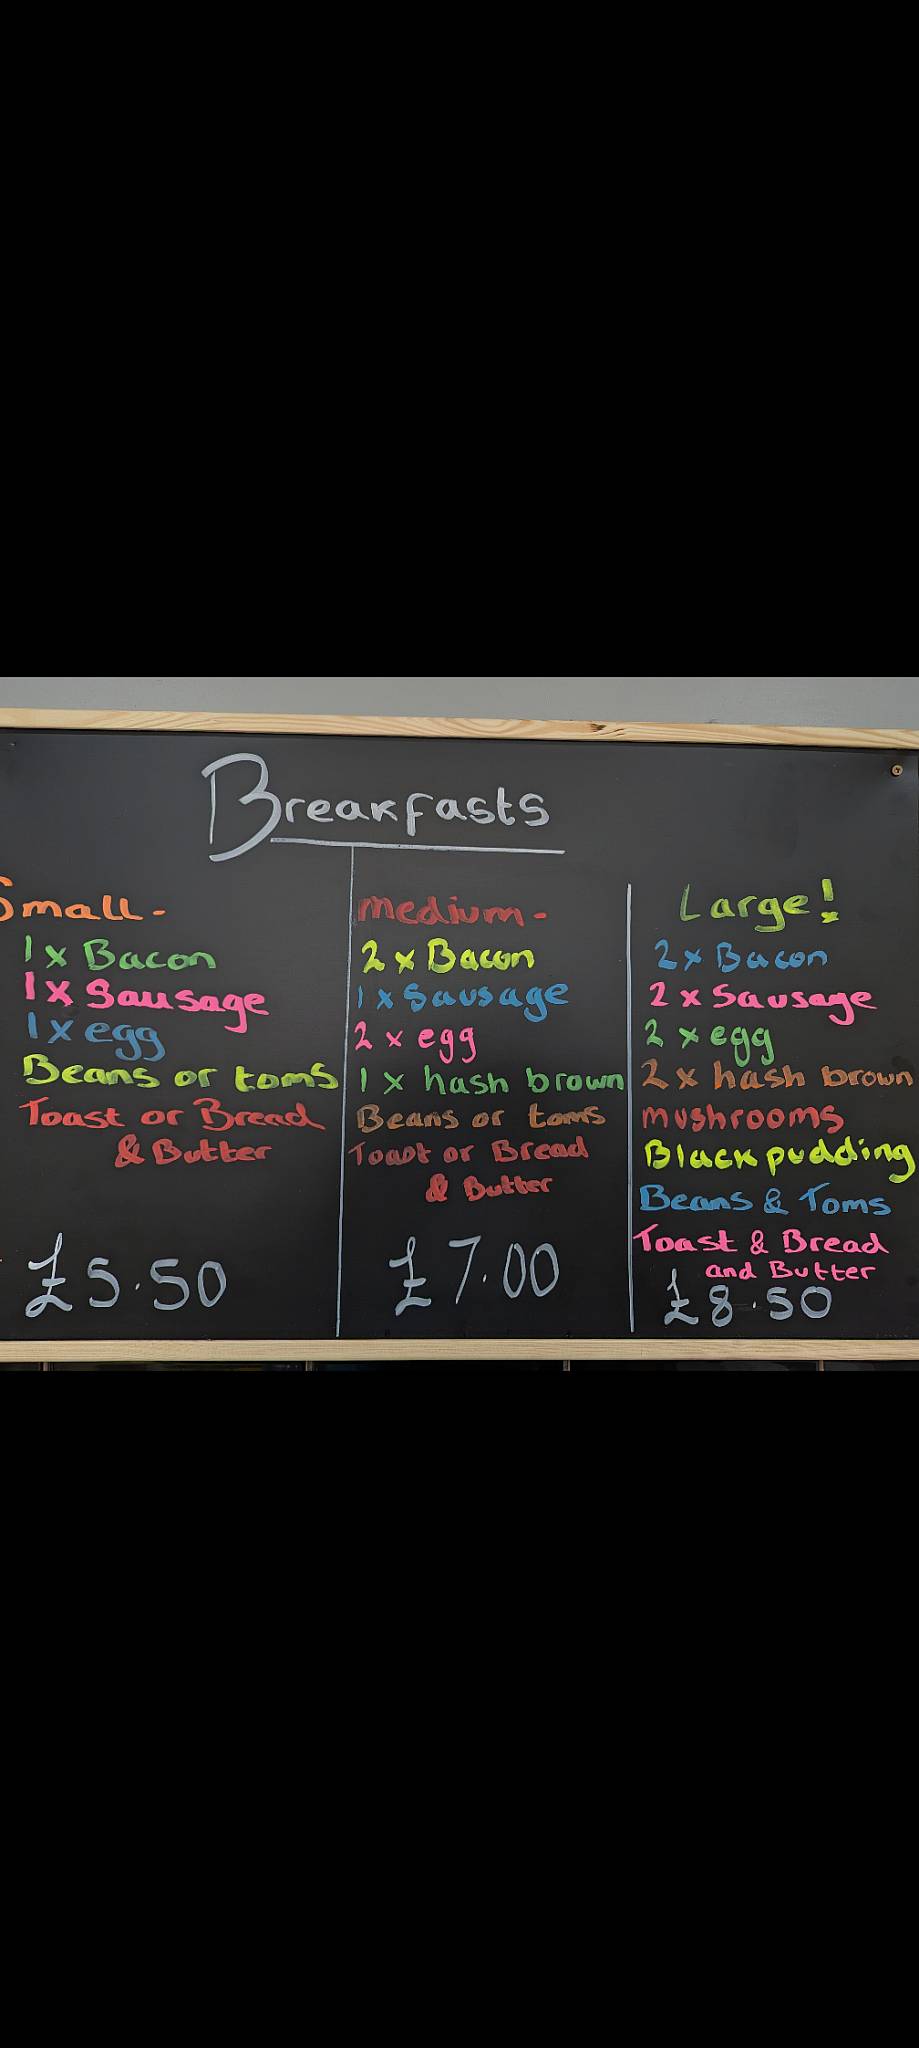 Breakfasts
Small-
1 x Bacon
1 x Sausage
1 x egg
Beans or toms
Toast or Bread
& Butter
£5.50
medium-
2 x Bacon
1 x Sausage
2 x egg
1 x hash brown
Beans or toms
Toast or Bread
& Butter
£7.00
Large!
2 x Bacon
2 x Sausage
2 x egg
2 x hash brown
mushrooms
Black pudding
Beans & Toms
Toast & Bread
and Butter
£8.50